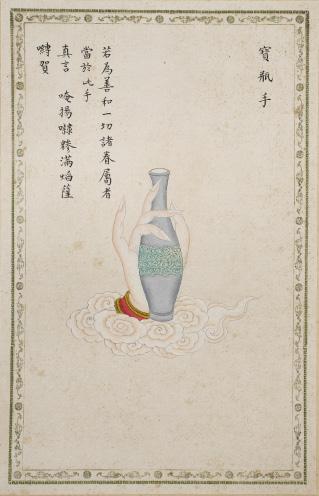 寶瓶手
若為善和一切諸眷屬者
當於此手
真言 唵揭糝滿焰薩
嚩賀